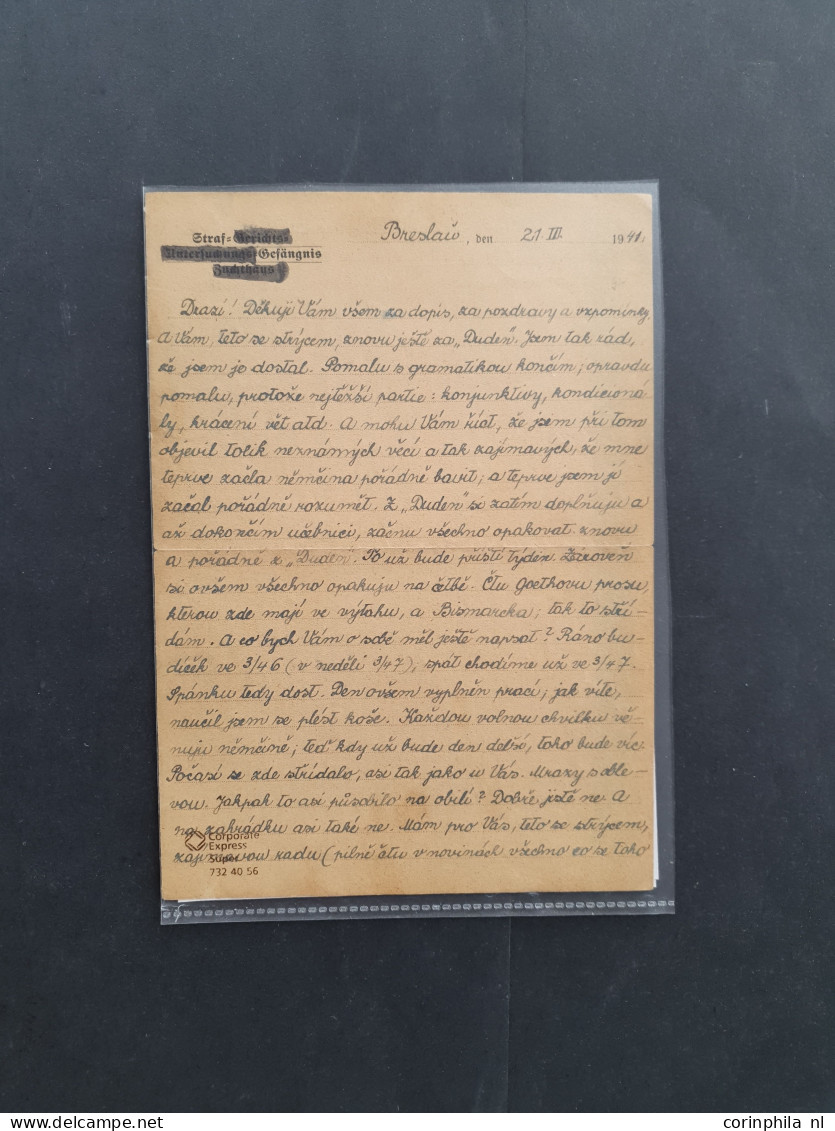 Straf-Gerichts-
Untersuchungs-Gefängnis
Zuchthaus
Breslau, den 21. III. 1941.
Drazí! Děkuji Vám všem za dopis, za pozdravy a vzpomínky.
A Vám, teto se strýcem, znovu ještě za „Duden". Jsem tak rád,
že jsem je dostal. Pomalu s gramatikou končím; opravdu
pomalu, protože nejtěžší partie: konjunktivy, kondicioná-
ly, krácení vět atd. A mohu Vám říct, že jsem při tom
objevil tolik neznámých věcí a tak zajímavých, že mne
teprve začla němčina pořádně bavit; a teprve jsem jí
začal pořádně rozumět. Z „Duden" si zatím doplňuju a
až dokončím učebnici, začnu všechno opakovat znovu
a pořádně z „Duden". To už bude příští týden. Zároveň
si ovšem všechno opakuju na četbě. Čtu Goethovu prosu,
kterou zde mají ve výtahu, a Bismarcka; tak to stří-
dám. A co bych Vám o sobě měl ještě napsat? Ráno bu-
díček ve 3/46 (v neděli 3/47), spát chodíme už ve 3/47.
Spánku tedy dost. Den ovšem vyplněn prací; jak víte,
naučil jsem se plést koše. Každou volnou chvilku vě-
nuju němčině; teď kdy už bude den delší, toho bude víc.
Počasí se zde střídalo, asi tak jako u Vás. Mrazy s oble-
vou. Jakpak to asi působilo na obilí? Dobře jistě ne. A
na zahrádku asi také ne. Mám pro Vás, teto se strýcem,
zajímavou radu (pilně čtu v novinách všechno co se toho
Corporate
Express
Super
732 40 56
corinphila nl